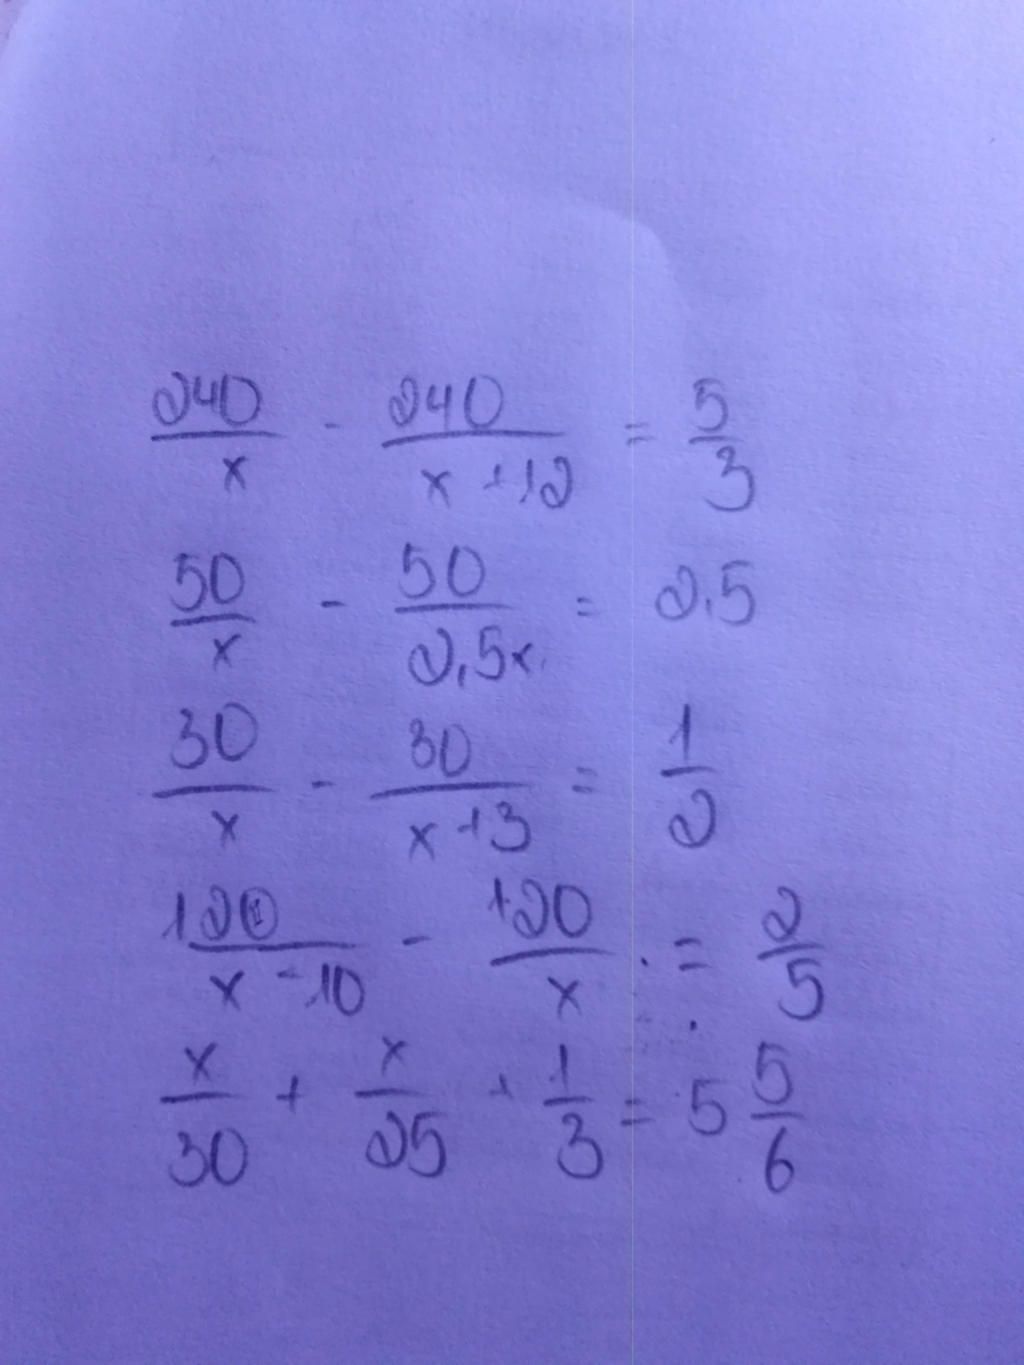 240/x - 240/x+12 = 5/3
50/x - 50/2,5x = 2.5
30/x - 30/x+3 = 1/2
120/x-10 - 120/x = 2/5
x/30 + x/25 + 1/3 = 5 5/6